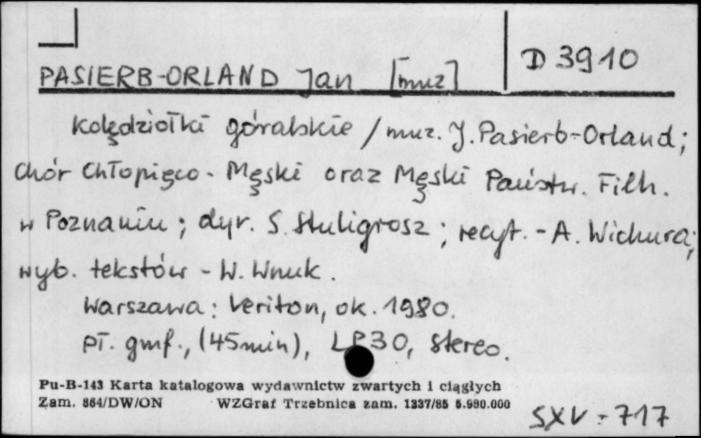 D 3910
PASIERB-ORLAND Jan [muz]
Kolędziołki góralskie / muz. J. Pasierb-Orland;
Chór Chłopięco - Męski oraz Męski Państw. Filh.
w Poznaniu; dyr. S. Stuligrosz; recyt. - A. Wichura;
wyb. tekstów - W. Wnuk.
Warszawa: Veriton, ok. 1980.
pł. gmf., (45min), LP30, stereo.
Pu-B-143 Karta katalogowa wydawnictw zwartych i ciągłych
Zam. 864/DW/ON WZGraf Trzebnica zam. 1337/85 5.980.000
SXV-717